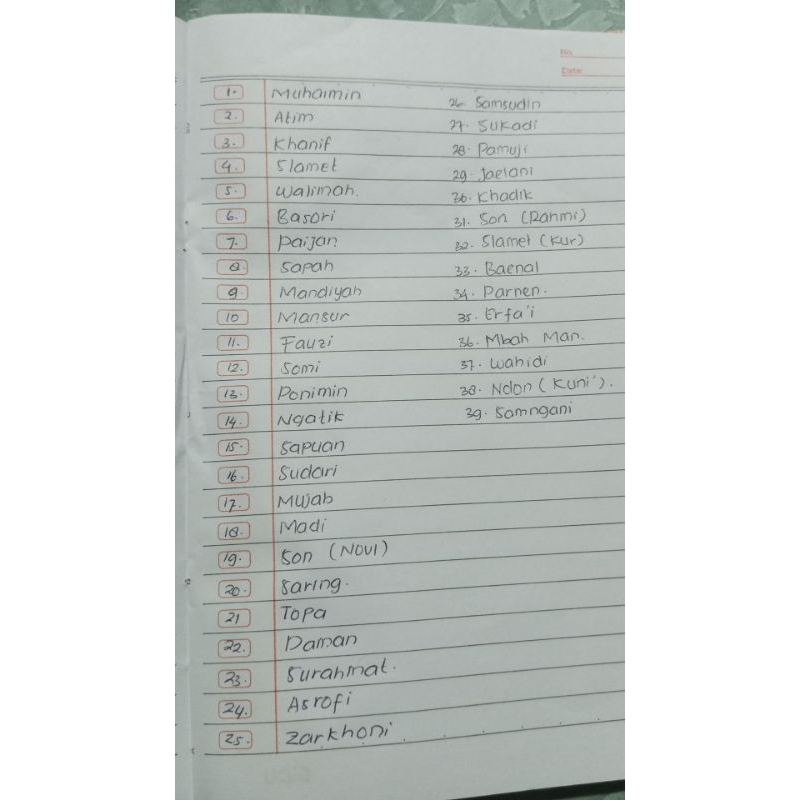 No.
Date
1. Muhaimin
2. Atim
3. Khanif
4. Slamet
5. Walimah.
6. Basori
7. Paijan
8. Sapah
9. Mandiyah
10 Mansur
11. Fauzi
12. Somi
13. Ponimin
14. Ngatik
15. Sapuan
16. Sudari
17. Mujab
18. Madi
19. Son (Novi)
20. Saring.
21 Topa
22. Daman
23. Surahmat.
24. Asrofi
25. Zarkhoni
26. Samsudin
27. Sukadi
28. Pamuji
29. Jaelani
30. Khadik
31. Son (Rahmi)
32. Slamet (Kur)
33. Baenal
34. Parnen.
35. Erfa'i
36. Mbah Man.
37. Wahidi
38. Ndon (Kuni').
39. Samngani